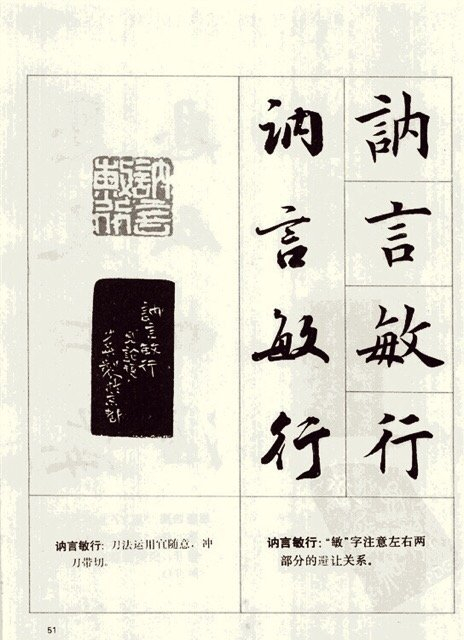 訥言敏行
讷言敏行
訥言
敏行
訥言敏行
讷言敏行：“敏”字注意左右两
部分的避让关系。
讷言敏行：刀法运用宜随意，冲
刀带切。
51